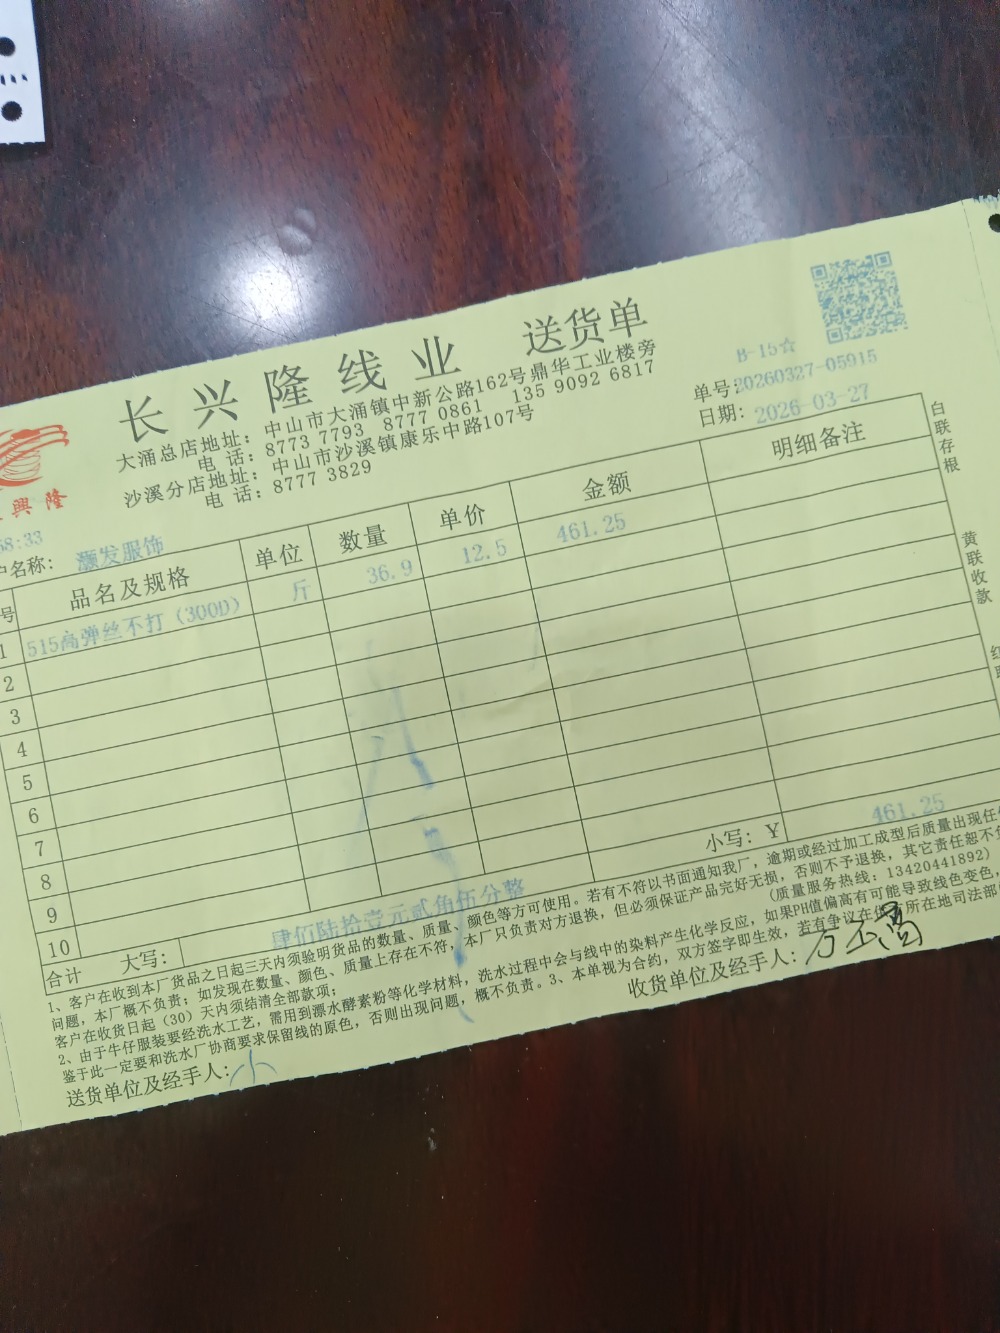 长兴隆线业 送货单
大涌总店地址：中山市大涌镇中新公路162号鼎华工业楼旁
电 话：8773 7793 8777 0861 135 9092 6817
沙溪分店地址：中山市沙溪镇康乐中路107号
电 话：8777 3829
B-15☆
单号：20260327-05915
日期：2026-03-27
興隆
58:33
户名称：灏发服饰
号 品名及规格 单位 数量 单价 金额 明细备注
1 515高弹丝不打（300D） 斤 36.9 12.5 461.25
2
3
4
5
6
7
8
9
10
小写：¥ 461.25
合计 大写：肆佰陆拾壹元贰角伍分整
1、客户在收到本厂货品之日起三天内须验明货品的数量、质量、颜色等方可使用。若有不符以书面通知我厂，逾期或经过加工成型后质量出现任
问题，本厂概不负责；如发现在数量、颜色、质量上存在不符，本厂只负责对方退换，但必须保证产品完好无损，否则不予退换，其它责任恕不
客户在收货日起（30）天内须结清全部款项；（质量服务热线：13420441892）
2、由于牛仔服装要经洗水工艺，需用到漂水酵素粉等化学材料，洗水过程中会与线中的染料产生化学反应，如果PH值偏高有可能导致线色变色，
鉴于此一定要和洗水厂协商要求保留线的原色，否则出现问题，概不负责。3、本单视为合约，双方签字即生效，若有争议在供方所在地司法部
送货单位及经手人：小
收货单位及经手人：
白联存根
黄联收款
红